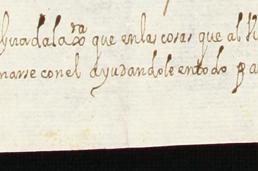 Guadalaxra que en las cosas que al
narse con el ayudandole en todo pa